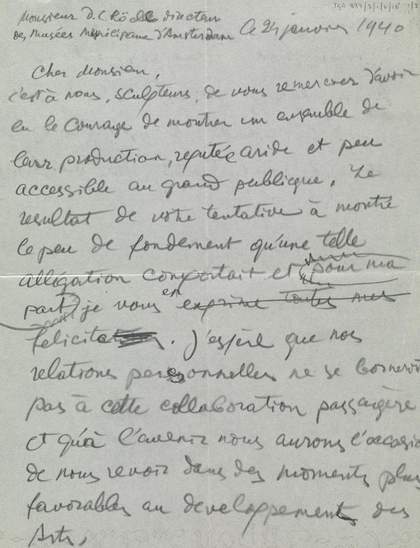 Monsieur D. C. Röell directeur
des Musées Municipaux d'Amsterdam le 24 janvier 1940
Cher Monsieur,
c'est à nous, sculpteurs, de vous remercier d'avoir
eu le courage de montrer un ensemble de
leur production, reputée aride et peu
accessible au grand publique. Le
resultat de votre tentative à montré
le peu de fondement qu'une telle
allégation comportait et pour ma
part je vous en exprime toutes mes
felicitations. J'espère que nos
relations personnelles ne se borneront
pas à cette collaboration passagère
et qu'à l'avenir nous aurons l'occasion
de nous revoir dans des moments plus
favorables au developpement des
Arts.